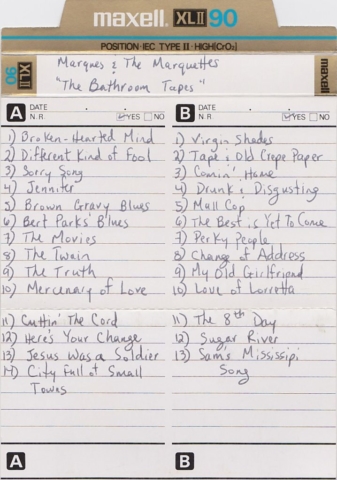 maxell. XLII 90
POSITION·IEC TYPE II·HIGH(CrO2)
XLII 90
Marques & The Marquettes
"The Bathroom Tapes"
maxell
A DATE . .
N.R. YES NO
1) Broken-Hearted Mind
2) Different Kind of Fool
3) Sorry Song
4) Jennifer
5) Brown Gravy Blues
6) Bert Parks' Blues
7) The Movies
8) The Twain
9) The Truth
10) Mercenary of Love
11) Cuttin' The Cord
12) Here's Your Change
13) Jesus Was a Soldier
14) City Full of Small
Towns
A
B DATE . .
N.R. YES NO
1) Virgin Shades
2) Tape & Old Crepe Paper
3) Comin' Home
4) Drunk & Disgusting
5) Mall Cop
6) The Best is Yet To Come
7) Perky People
8) Change of Address
9) My Old Girlfriend
10) Love of Lorretta
11) The 8th Day
12) Sugar River
13) Sam's Mississipi
Song
B